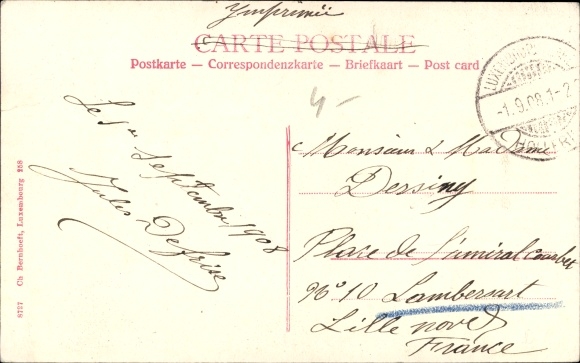 Imprimée
CARTE POSTALE
Postkarte – Correspondenzkarte – Briefkaart – Post card
LUXEMBOURG
-1.9.08.1-2
4-
Le 1er Septembre 1908
Jules
Monsieur & Madame
Dersiny
Place de l'amiral Courbet
N° 10 Lambersart
Lille nord
France
8727 Ch Bernhoeft, Luxembourg 258